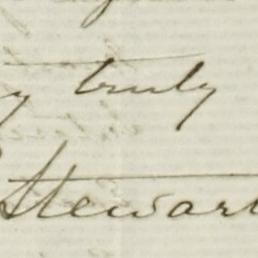 y truly
Stewart